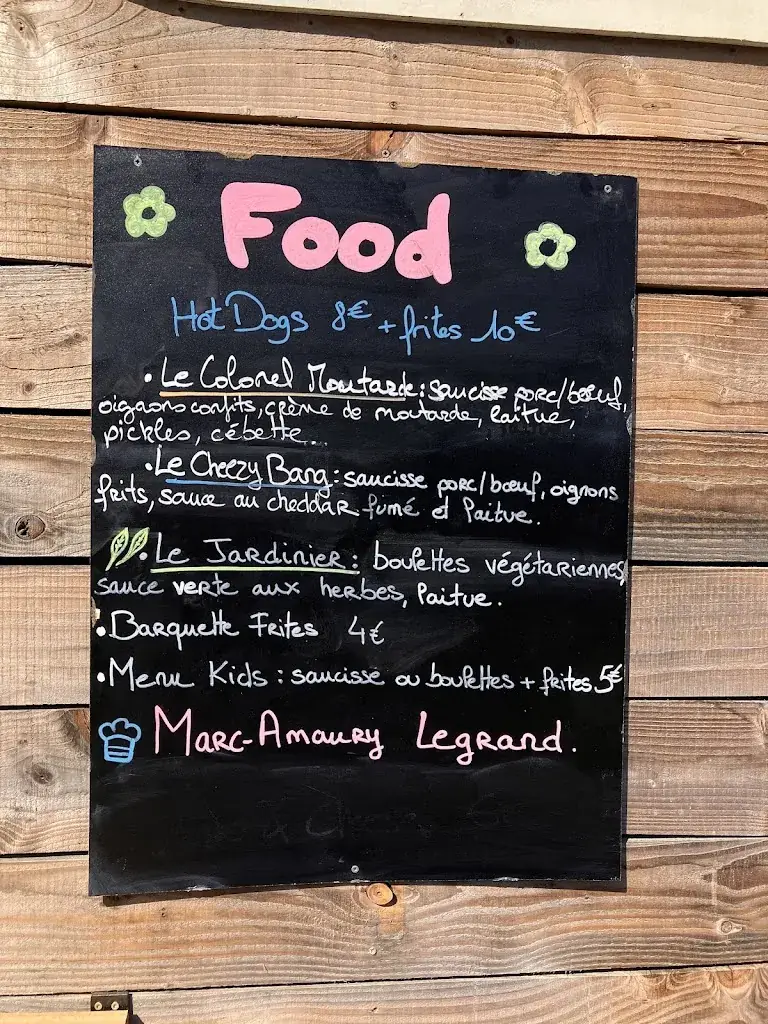 Food
Hot Dogs 8€ + frites 10€
• Le Colonel Moutarde : saucisse porc/bœuf,
oignons confits, crème de moutarde, laitue,
pickles, cébette...
• Le Cheezy Bang : saucisse porc/bœuf, oignons
frits, sauce au cheddar fumé et laitue.
• Le Jardinier : boulettes végétariennes,
sauce verte aux herbes, laitue.
• Barquette Frites 4€
• Menu Kids : saucisse ou boulettes + frites 5€
Marc-Amaury Legrand.